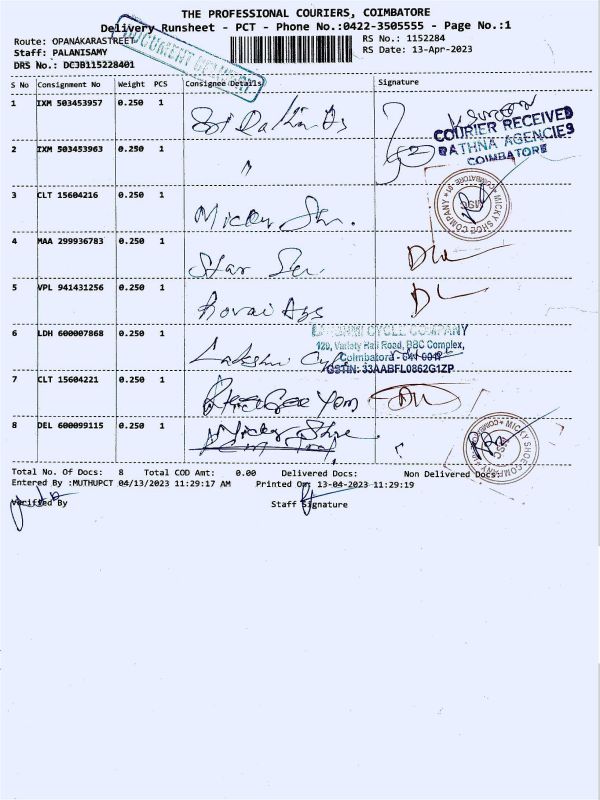 THE PROFESSIONAL COURIERS, COIMBATORE
Delivery Runsheet - PCT - Phone No.:0422-3505555 - Page No.:1
Route: OPANAKARASTREET
RS No.: 1152284
Staff: PALANISAMY
RS Date: 13-Apr-2023
DRS No.: DCJB115228401
DOCUMENT
S No Consignment No Weight PCS Consignee Details Signature
1 IXM 503453957 0.250 1
COURIER RECEIVED
RATHNA AGENCIES
COIMBATORE
2 IXM 503453963 0.250 1 "
3 CLT 15604216 0.250 1 Micky Sh.
MICKY SHOE COMPANY
4 MAA 299936783 0.250 1 Star
5 VPL 941431256 0.250 1 Kovai Ags
LAKSHMI CYCLE COMPANY
6 LDH 600007868 0.250 1 Lakshmi Cycle
120, Variety Hall Road, BBC Complex,
Coimbatore - 641 001
GSTIN: 33AABFL0862G1ZP
7 CLT 15604221 0.250 1
8 DEL 600099115 0.250 1 Micky Shoe
MICKY SHOE COMPANY
Total No. Of Docs: 8 Total COD Amt: 0.00 Delivered Docs: Non Delivered Docs:
Entered By :MUTHUPCT 04/13/2023 11:29:17 AM Printed On: 13-04-2023 11:29:19
Verified By Staff Signature